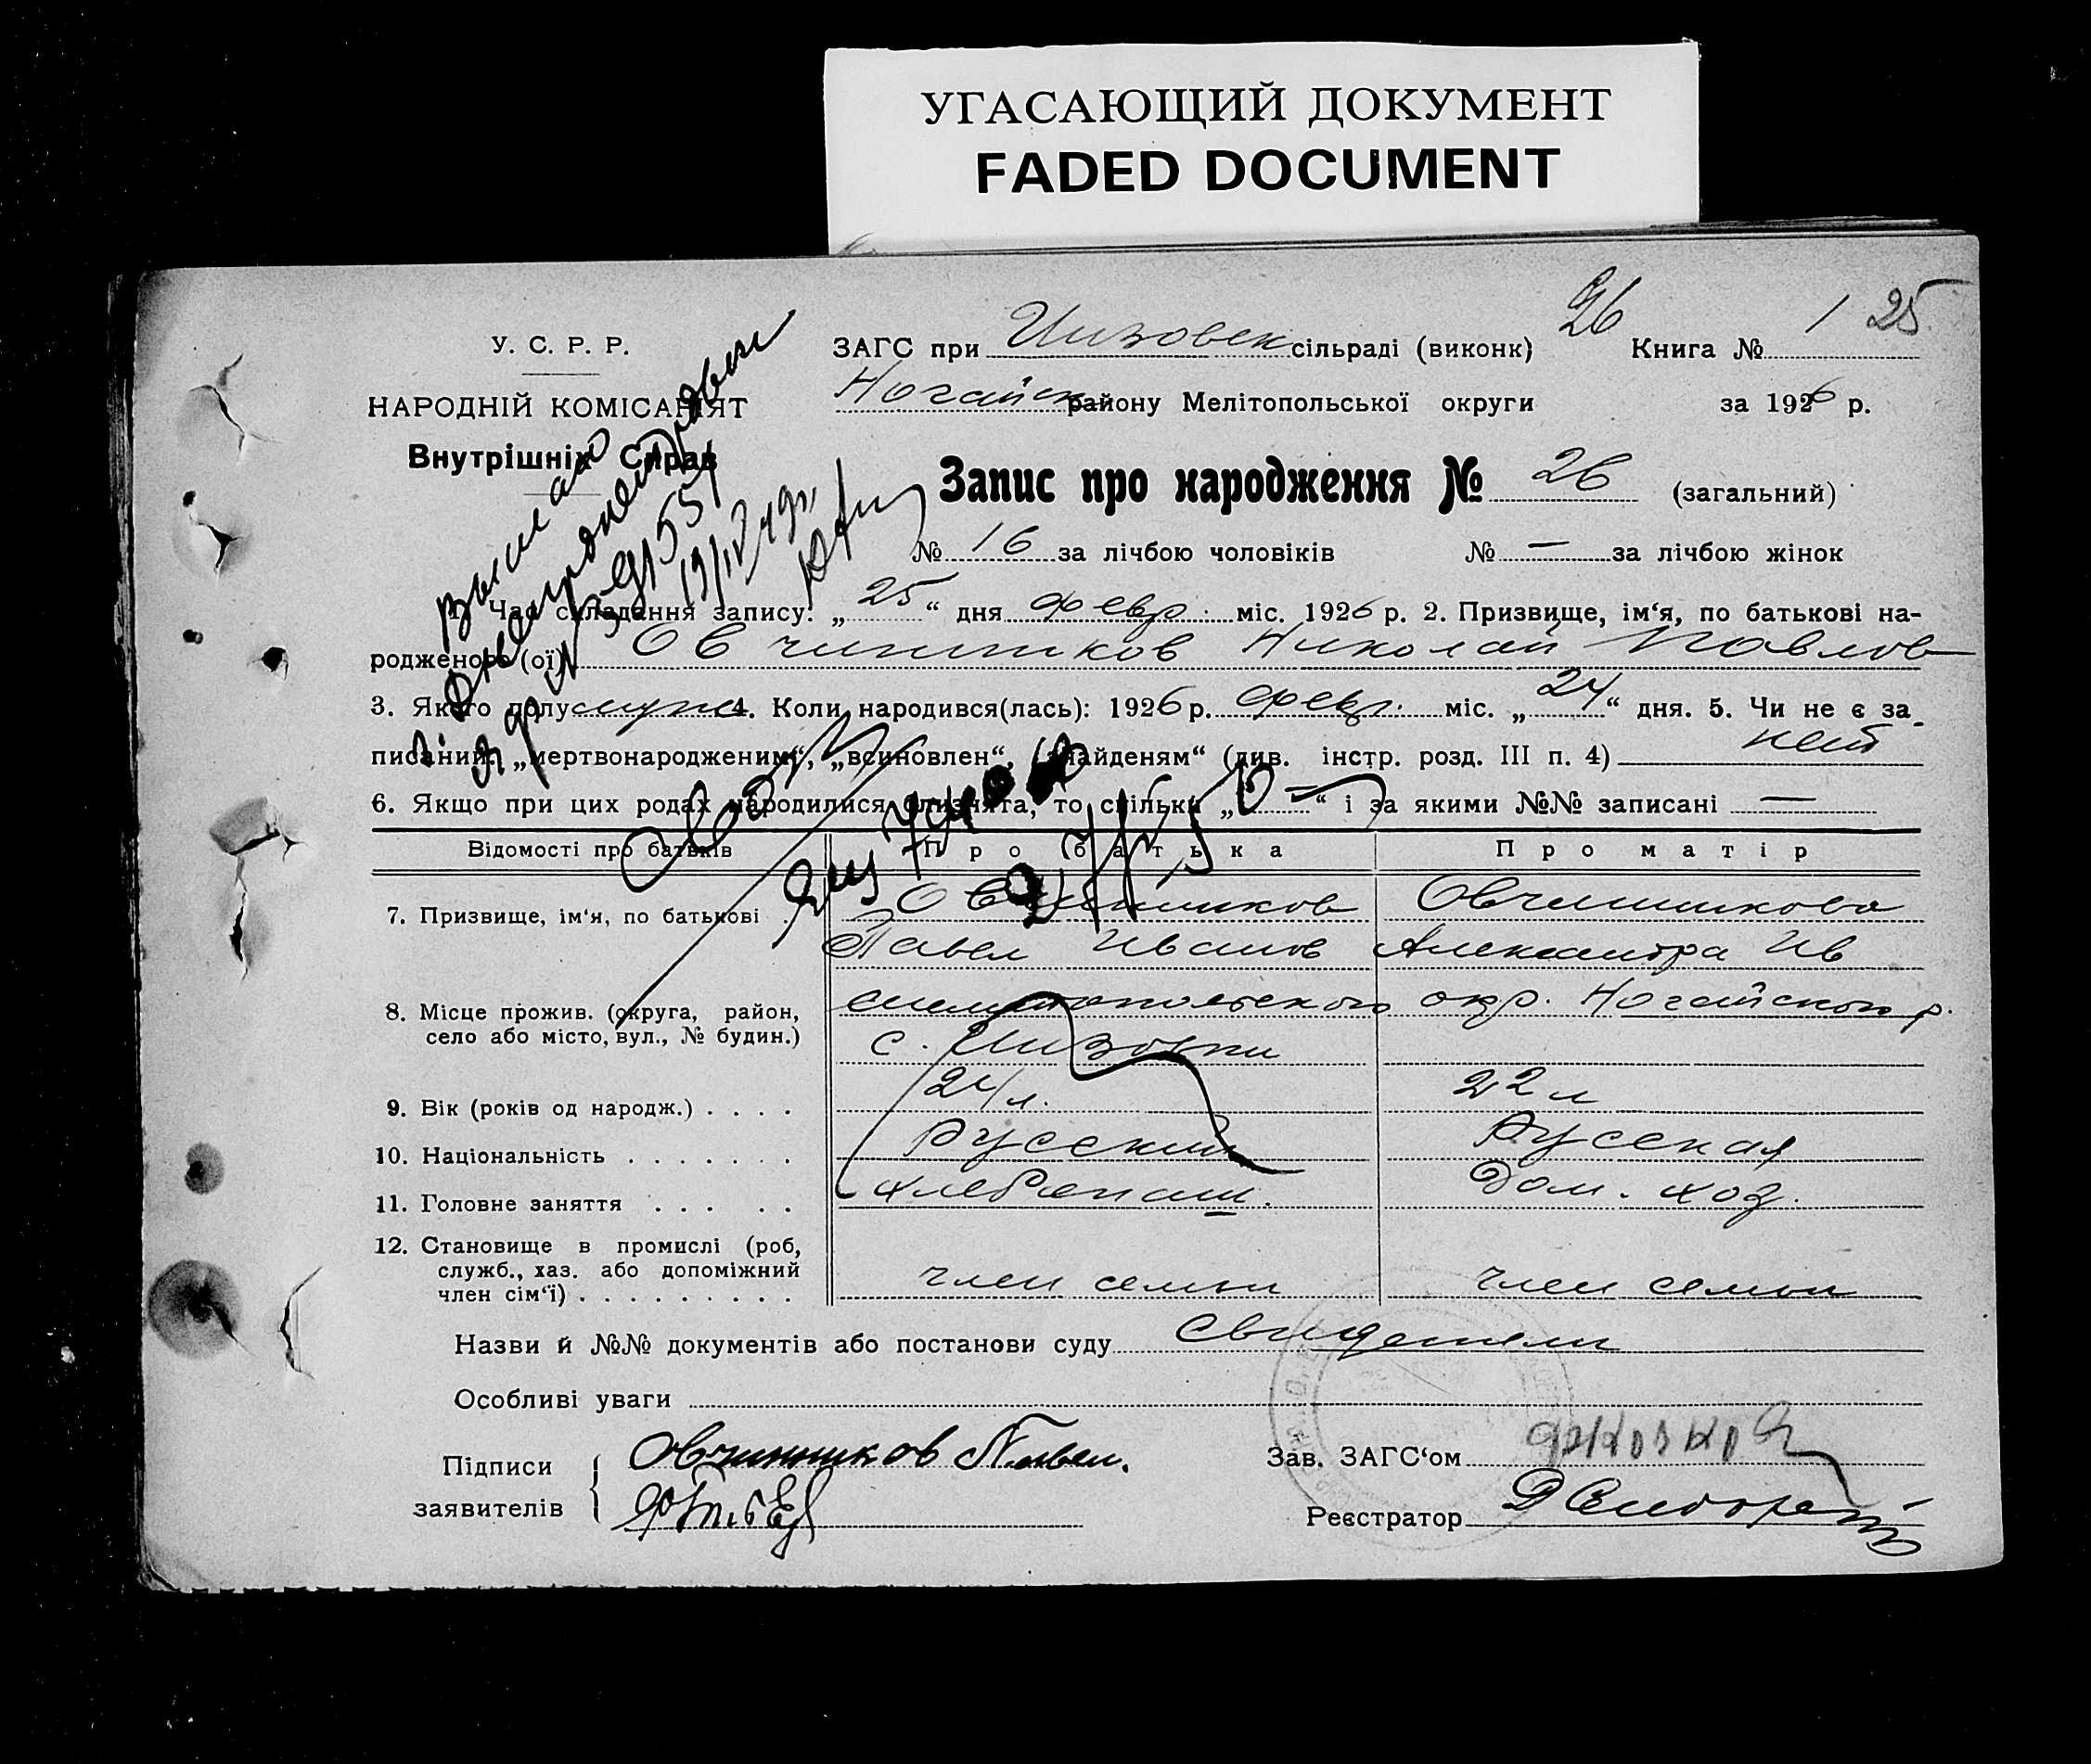 УГАСАЮЩИЙ ДОКУМЕНТ
FADED DOCUMENT
26
1 25
У. С. Р. Р.
ЗАГС при сільраді (виконк) Книга №
НАРОДНІЙ КОМІСАРІЯТ
Ногайск району Мелітопольської округи за 1926 р.
Внутрішніх Справ
Запис про народження № 26 (загальний)
№ 16 за лічбою чоловіків № — за лічбою жінок
Выслано
1. Час складання запису: „25“ дня февр. міс. 1926 р. 2. Призвище, ім‘я, по батькові на-
родженого (ої) Овчинников Николай Павлов
3. Якого полу муж. 4. Коли народився(лась): 1926 р. февр. міс. „24“ дня. 5. Чи не є за-
писаний: „мертвонародженим“, „всиновлен“, „знайденям“ (див. інстр. розд. III п. 4) нет
6. Якщо при цих родах народилися близнята, то скільки „—“ і за якими №№ записані —
Відомості про батьків Про батька Про матір
7. Призвище, ім‘я, по батькові . Овчинников Овчинникова
Павел Иванов Александра Ив
8. Місце прожив. (округа, район, Мелитопольского окр. Ногайского р.
село або місто, вул., № будин.) с.
9. Вік (років од народж.) . . . . 24 л. 22 л
10. Національність . . . . . . . Русский Русская
11. Головне заняття . . . . . Хлебопаш. Дом. хоз.
12. Становище в промислі (роб,
служб., хаз. або допоміжний
член сім‘ї) . . . . . . . . . член семьи член семьи
Назви й №№ документів або постанови суду Свидетели
Особливі уваги
Підписи Овчинников Павел. Зав. ЗАГС‘ом
заявителів Реєстратор